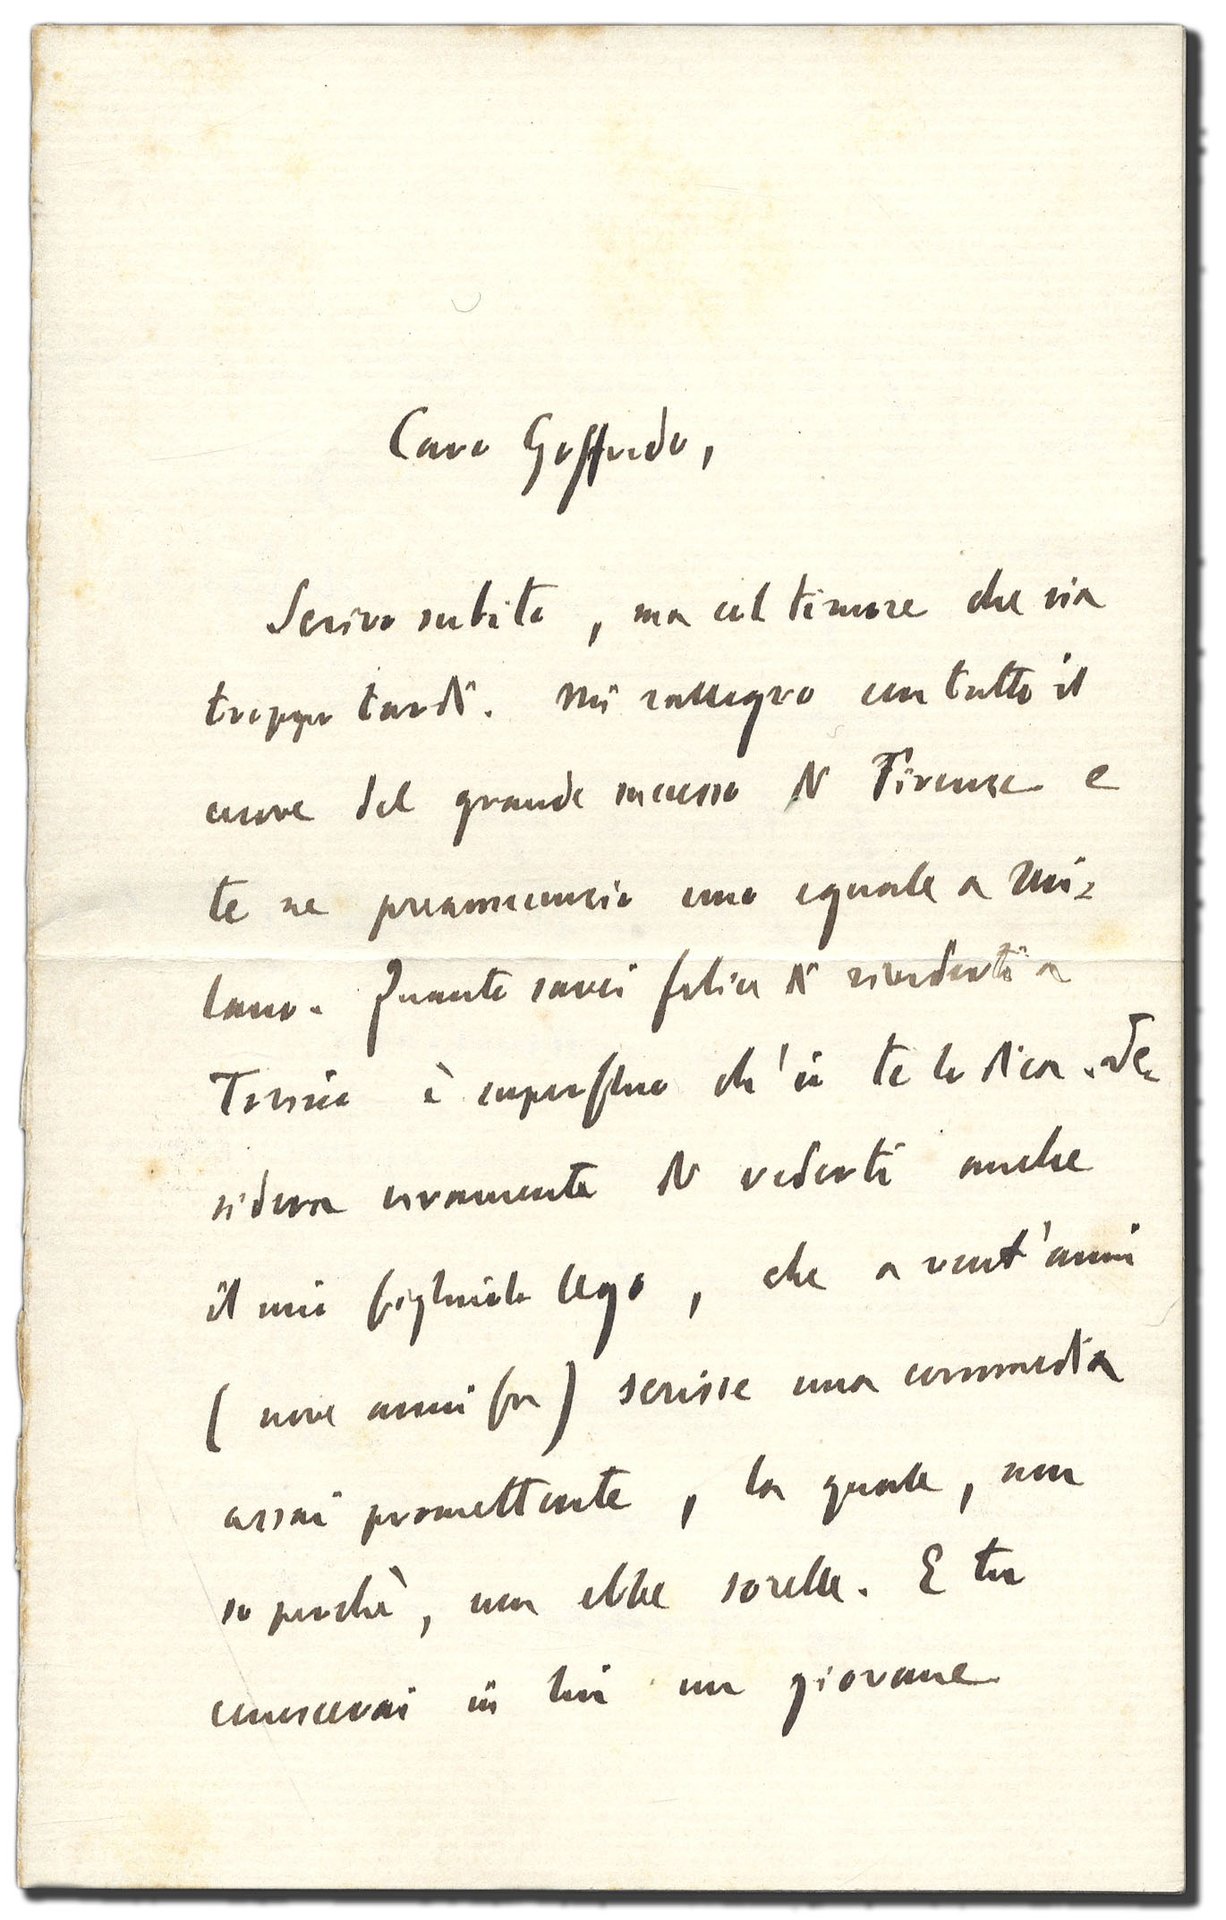 Caro Goffredo,
Scrivo subito, ma col timore che sia
troppo tardi. Mi rallegro con tutto il
cuore del grande successo di Firenze e
te ne preannunzio uno eguale a Mi-
lano. Quanto sarei felice di rivederti a
Torino è superfluo ch'io te lo dica. De-
sidera vivamente di vederti anche
il mio figliuolo Ugo, che a vent'anni
(nove anni fa) scrisse una commedia
assai promettente, la quale, non
so perchè, non ebbe sorelle. E tu
conoscerai in lui un giovane